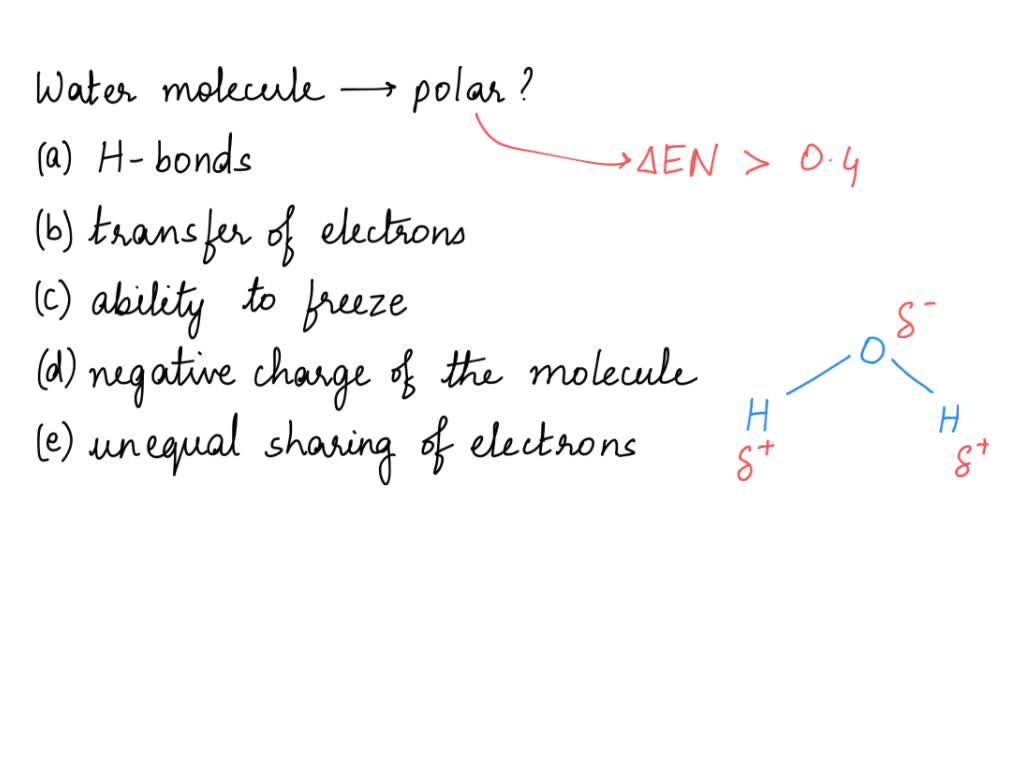 Water molecule → polar?
(a) H-bonds
ΔEN > 0.4
(b) transfer of electrons
(c) ability to freeze
(d) negative charge of the molecule
(e) unequal sharing of electrons
δ⁻
O
H H
δ⁺ δ⁺